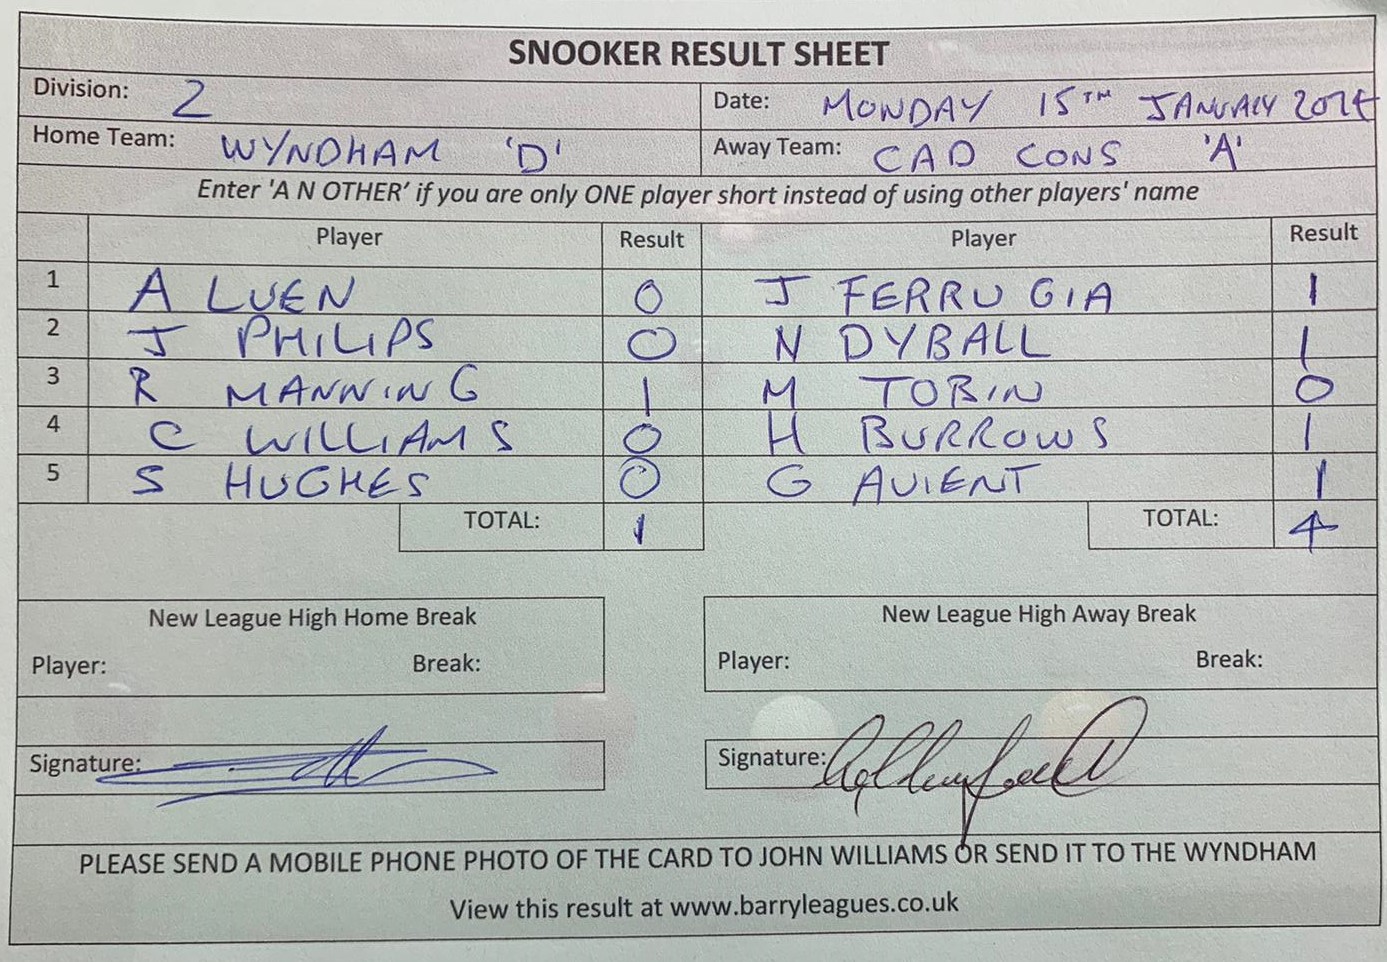 SNOOKER RESULT SHEET
Division: 2 Date: MONDAY 15TH JANUARY 2024
Home Team: WYNDHAM 'D' Away Team: CAD CONS 'A'
Enter 'A N OTHER' if you are only ONE player short instead of using other players' name
Player Result Player Result
1 A LUEN 0 J FERRUGIA 1
2 J PHILIPS 0 N DYBALL 1
3 R MANNING 1 M TOBIN 0
4 C WILLIAMS 0 H BURROWS 1
5 S HUGHES 0 G AVIENT 1
TOTAL: 1 TOTAL: 4
New League High Home Break New League High Away Break
Player: Break: Player: Break:
Signature: Signature:
PLEASE SEND A MOBILE PHONE PHOTO OF THE CARD TO JOHN WILLIAMS OR SEND IT TO THE WYNDHAM
View this result at www.barryleagues.co.uk